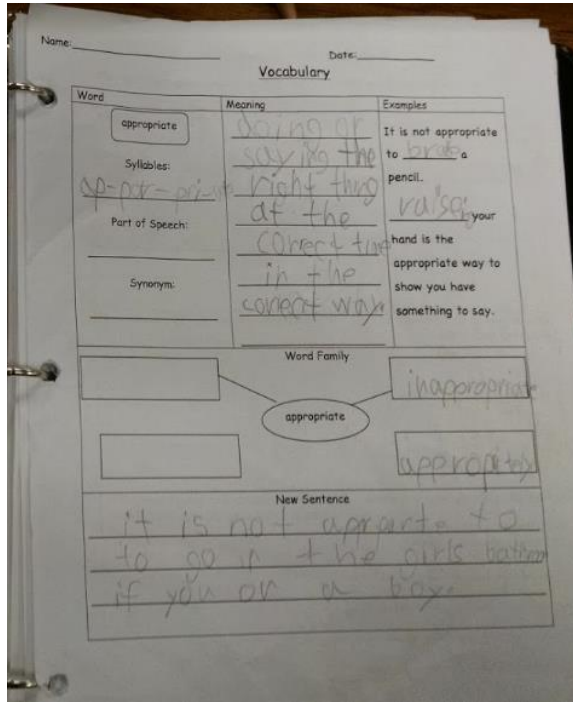 Name: Date:
Vocabulary
Word Meaning Examples
appropriate
Syllables:
ap-por-pri-ate
Part of Speech:
Synonym:
doing or
saying the
right thing
at the
correct time
in the
correct way.
It is not appropriate
to brake a
pencil.
raiseing your
hand is the
appropriate way to
show you have
something to say.
Word Family
inapporopriate
appropriate
appropitely
New Sentence
it is not apprarte to
to go in the girls
if you or a boy.